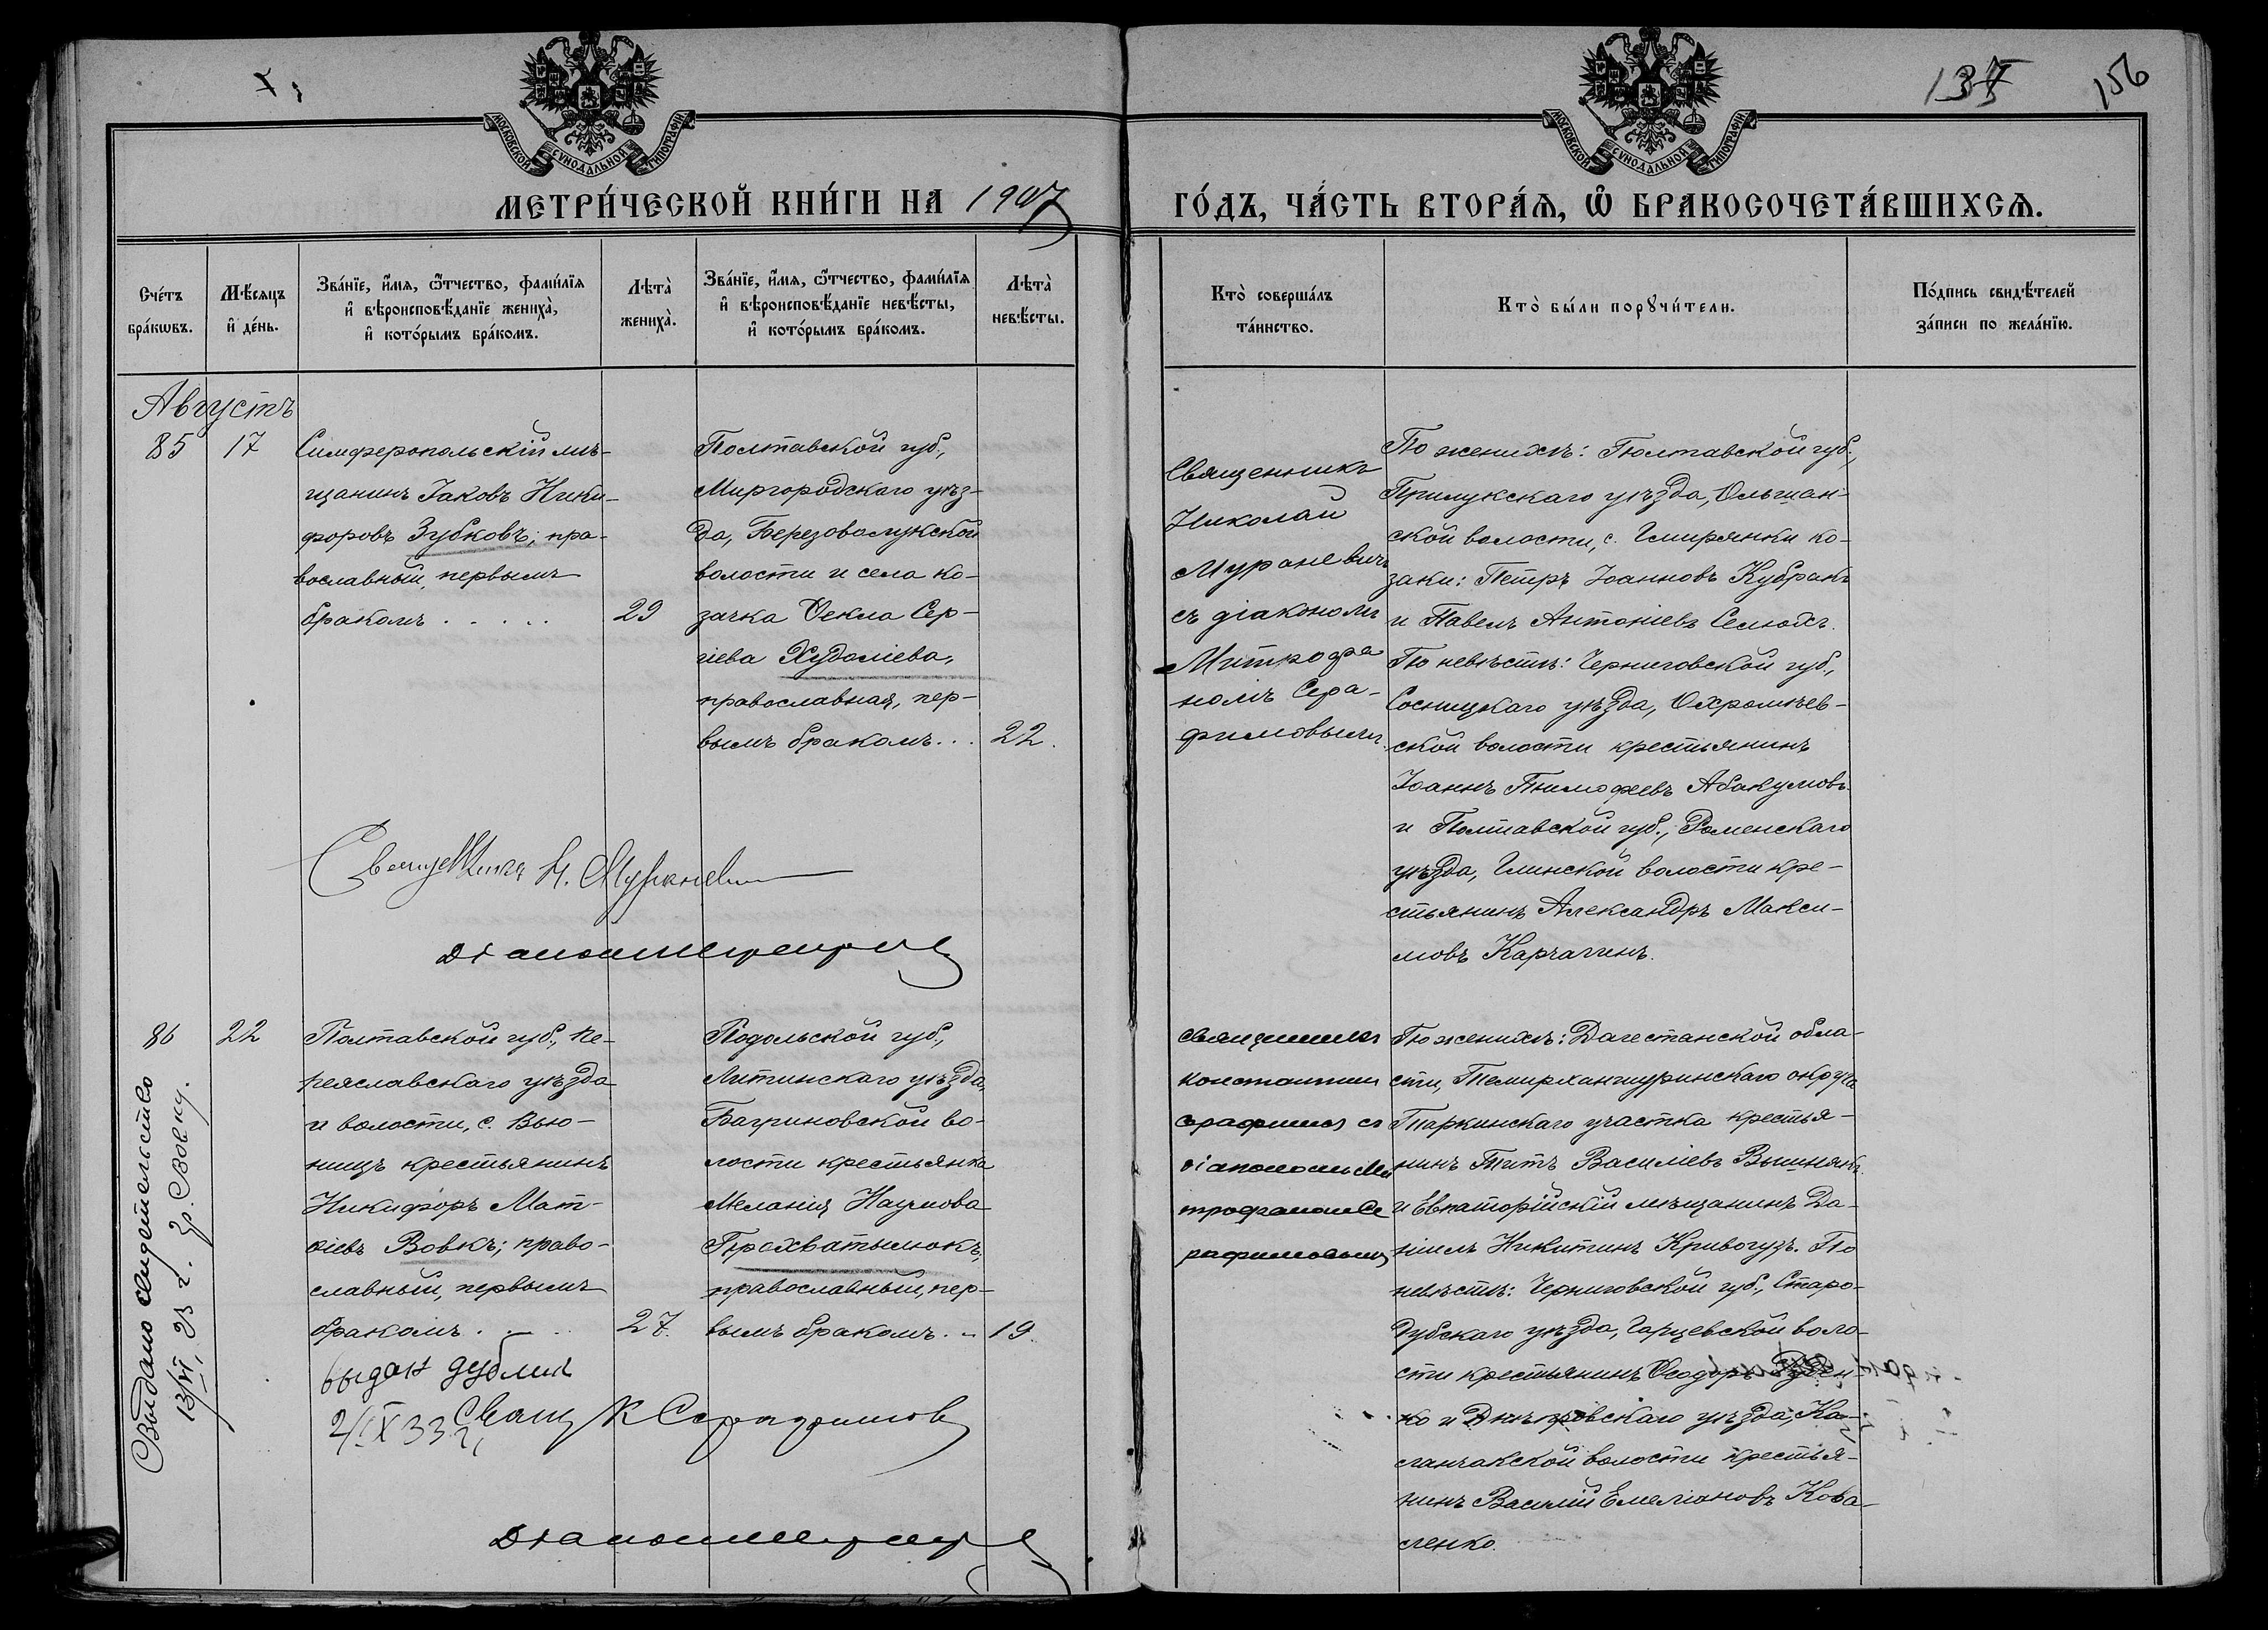 137
156
МОСКОВСКОЙ СѴНОДАЛЬНОЙ ТИПОГРАФІИ
МОСКОВСКОЙ СѴНОДАЛЬНОЙ ТИПОГРАФІИ
МЕТРИ́ЧЕСКОЙ КНИ́ГИ НА 1907
ГО́ДЪ, ЧА́СТЬ ВТОРА́Ѧ, Ѡ҆ БРАКОСОЧЕТА́ВШИХСѦ.
Сче́тъ
бра́кѡвъ.
Мѣ́сяцъ
и҆ де́нь.
Зва́нїе, и҆́мя, ѻ҆́тчество, фами́лїя
и҆ вѣроисповѣ́данїе жениха̀,
и҆ кото́рымъ бра́комъ.
Лѣта̀
жениха̀.
Зва́нїе, и҆́мя, ѻ҆́тчество, фами́лїя
и҆ вѣроисповѣ́данїе невѣ́сты,
и҆ кото́рымъ бра́комъ.
Лѣта̀
невѣ́сты.
Кто̀ соверша́лъ
та́инство.
Кто̀ бы́ли порꙋчи́тели.
По́дпись свидѣ́телей
за́писи по жела́нїю.
Августъ
85
17
Симферопольскій мѣ-
щанинъ Іаковъ Ники-
форовъ Зубковъ; пра-
вославный, первымъ
бракомъ . . . . .
29
Полтавской губ.,
Миргородскаго уѣз-
да, Березоволукской
волости и села ко-
зачка Ѳекла Сер-
гіева Худоліева,
православная, пер-
вымъ бракомъ. . .
22.
Священникъ
Николай
Мураневичъ
съ діакономъ
Митрофа
номъ Сера-
фимовымъ.
По женихѣ: Полтавской губ.,
Прилукскаго уѣзда, Ольшан-
ской волости, с. Гмирянки ко-
заки: Петръ Іоанновъ Кубракъ
и Павелъ Антоніевъ Селюхъ.
По невѣстѣ: Черниговской губ.,
Сосницкаго уѣзда, Охромѣев-
ской волости крестьянинъ
Іоаннъ Тимофеевъ Абакумовъ
и Полтавской губ., Роменскаго
уѣзда, Глинской волости кре-
стьянинъ Александръ Макси-
мовъ Карчагинъ.
Священникъ Н. Мураневич
86
22
Полтавской губ., Пе-
реяславскаго уѣзда
и волости, с. Вью-
нищъ крестьянинъ
Никифоръ Мат-
ѳіевъ Вовкъ; право-
славный, первымъ
бракомъ. . . .
27.
Подольской губ.,
Литинскаго уѣзда,
Багриновской во-
лости крестьянка
Меланія Наумова
Прохватылюкъ,
православный, пер-
вымъ бракомъ. .
19.
Священникъ
Константинъ
Серафимовъ съ
діакономъ Ми
трофаномъ Се
рафимовымъ
По женихѣ: Дагестанской обла-
сти, Темирханшуринскаго округа
Таркинскаго участка крестья-
нинъ Титъ Василіевъ Вышнякъ
и Евпаторійскій мѣщанинъ Да-
ніилъ Никитинъ Кривогузъ. По
невѣстѣ: Черниговской губ., Старо-
дубскаго уѣзда, Гарцевской воло-
сти крестьянинъ Ѳеодоръ Руден-
ко и Днѣпровскаго уѣзда, Ка-
ланчакской волости крестья-
нинъ Василій Емеліановъ Кова-
ленко.
Выдано свидетельство
13/VI, 23 г. гр. Вовку.
выдан дублик
2/IX 33 г,
Свящ К Серафимов